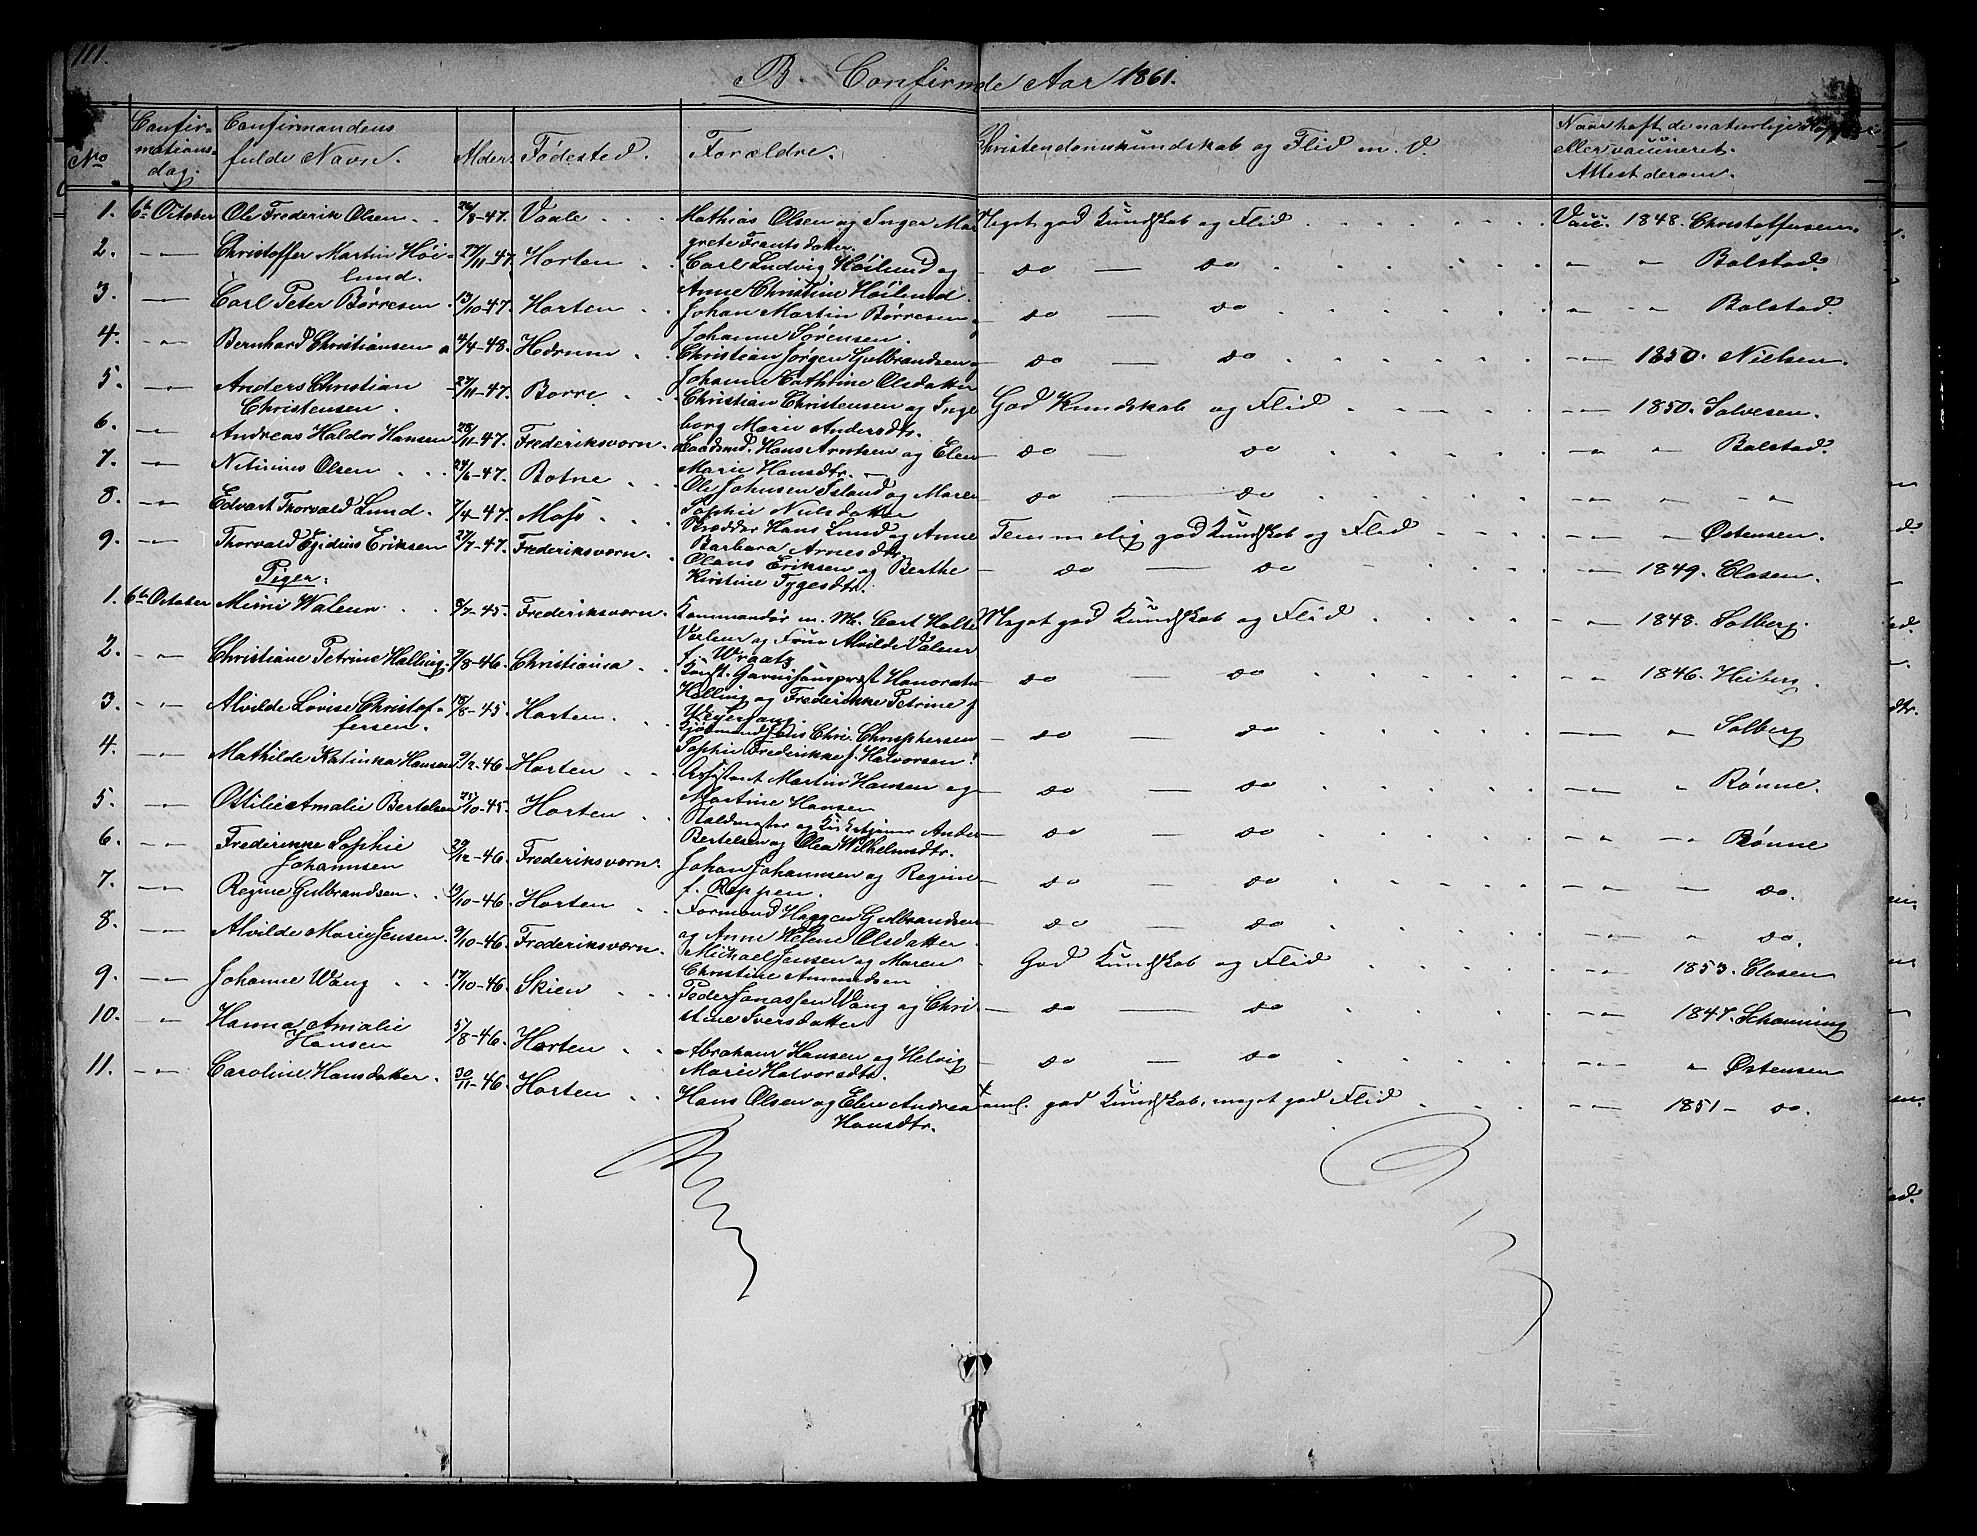 111.
B. Confirmde Aar 1861.
No Confirmationsdag. Confirmandens fulde Navn. Alder Fødested. Forældre. Christendomskundskab og Flid m. V. Naar haft de naturlige Kopper eller vaccineret. Attest derom.
1. 6te October Ole Frederik Olsen 26/8-47. Vaale Mathias Olsen og Inger Margrete Frantsdatter. Meget god Kundskab og Flid Vacc. 1848. Christoffersen.
2. -"- Christoffer Martin Höilund. 27/11-47. Horten Carl Ludvig Höilund og Anne Christine Höilund. do — do " -"- Bolstad.
3. -"- Carl Peter Börresen 13/10-47. Horten Johan Martin Börresen, Johanne Sörensen. do — do " -"- Bolstad.
4. -"- Bernhard Christiansen 4/4-48. Hedrum Christian Jörgen Gulbrandsen og Johanne Cathrine Olsdatter do — do -"- 1850. Nielsen.
5. -"- Anders Christian Christensen. 27/11-47. Borre Christian Christensen og Ingeborg Marie Andersdtr. God Kundskab og Flid -"- 1850. Salvesen.
6. -"- Andreas Haldor Hansen 28/11-47. Frederiksværn. Hans Arntsen og Elen Marie Hansdtr. do — do -"- " Bolstad.
7. -"- Olsen 24/6-47. Botne Ole Johnsen og Maren Sophie Nielsdatter do — do -"- " "
8. -"- Edvart Thorvald Lund. 7/4-47. Moss Hans Lund og Anne Barbara Arnesdtr. Temmelig god Kundskab og Flid -"- " Østensen.
9. -"- Thorvald Egidius Eriksen 27/7-47. Frederiksværn. Olaus Eriksen og Berthe Kirstine Tygesdtr. do — do -"- 1849. Clasen.
Piger.
1. 6te October Mimi Waleur 9/7-45. Frederiksværn. Kommandör m. M. Carl Holte Valeur og Frue Alvilde Valeur f. Wraatz Meget god Kundskab og Flid -"- 1848. Solberg.
2. -"- Christiane Petrine Halling 9/8-46. Christiania Const. Garnisonspræst Honoratus Halling og Frederikke Petrine f. do — do -"- 1846. Heiberg.
3. -"- Alvilde Lovise Christoffersen. 18/8-45. Horten. Kjöbmand Chr. Christophersen Sophie Frederikke f. Halvorsen. do — do -"- " Solberg
4. -"- Mathilde Katinka Hansen 9/2-46. Horten Assistent Martin Hansen og Martine Hansen do — do -"- " Rönne.
5. -"- Ottilie Amalie Bertelsen 25/10-45. Horten og Kirketjener Anders Bertelsen og Olea Wilhelmsdtr. do — do -"- " Rönne
6. -"- Frederikke Sophie Johannsen 29/12-46. Frederiksværn. Johan Johannsen og Regine f. Reppen. do — do -"- — do.
7. -"- Regine Gulbrandsen. 19/10-46. Horten Formand Haagen Gulbrandsen og Anne Helene Olsdatter do — do -"- " do.
8. -"- Alvilde Marie Jensen. 9/10-46. Frederiksværn. Michael Jensen og Maren Christine Amundsen God Kundskab og Flid -"- 1853. Clasen
9. -"- Johanne Wang 17/10-46. Skien Peder Jonassen Wang og Christine Iversdatter do — do -"- 1847. Schanning
10. -"- Hanna Amalie Hansen 5/8-46. Horten Abraham Hansen og Helvig Marie Halvorsdtr. do — do -"- " Østensen
11. -"- Caroline Hansdatter. 30/11-46. Horten Hans Olsen og Elen Andrea Hansdtr. Teml. god Kundskab, meget god Flid -"- 1851 — do.